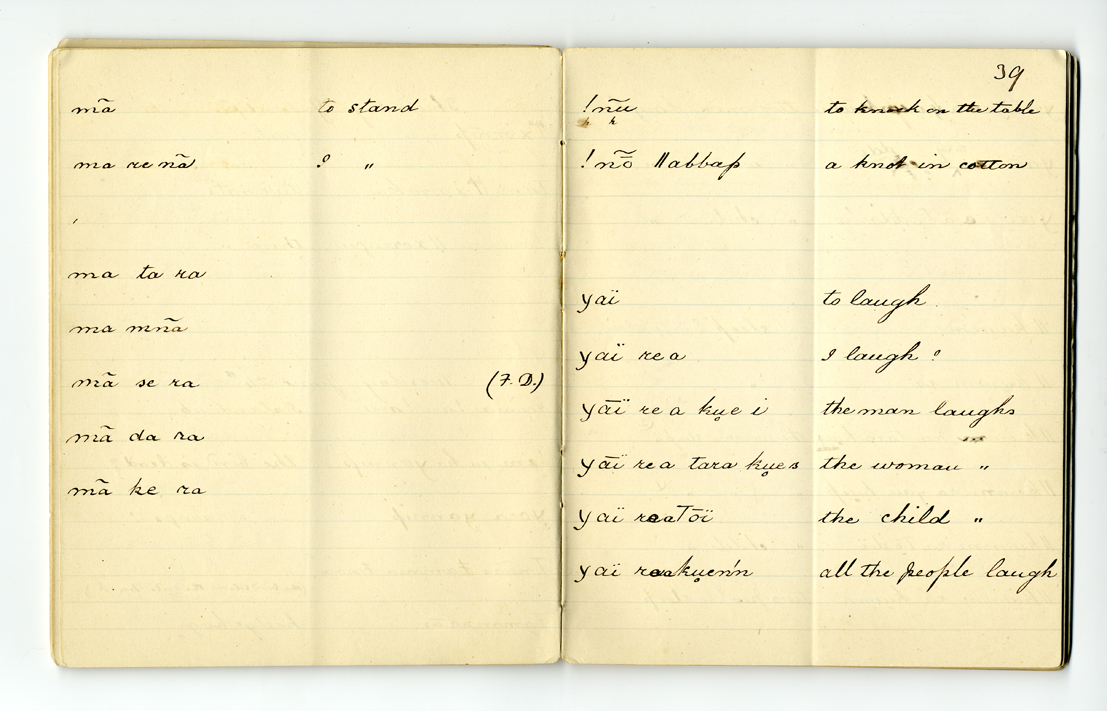 mã to stand
ma re nã ? "
ma ta ra
ma mnã
mã se ra (F.D.)
mã da ra
mã ke ra
39
!nũ to knock on the table
!nõ ǁabbap a knot in cotton
yaï to laugh
yaï re a I laugh ?
yāï re a kụe i the man laughs
yāï re a tara kụes the woman "
yaï reatōï the child "
yaï reakụen'n all the people laugh